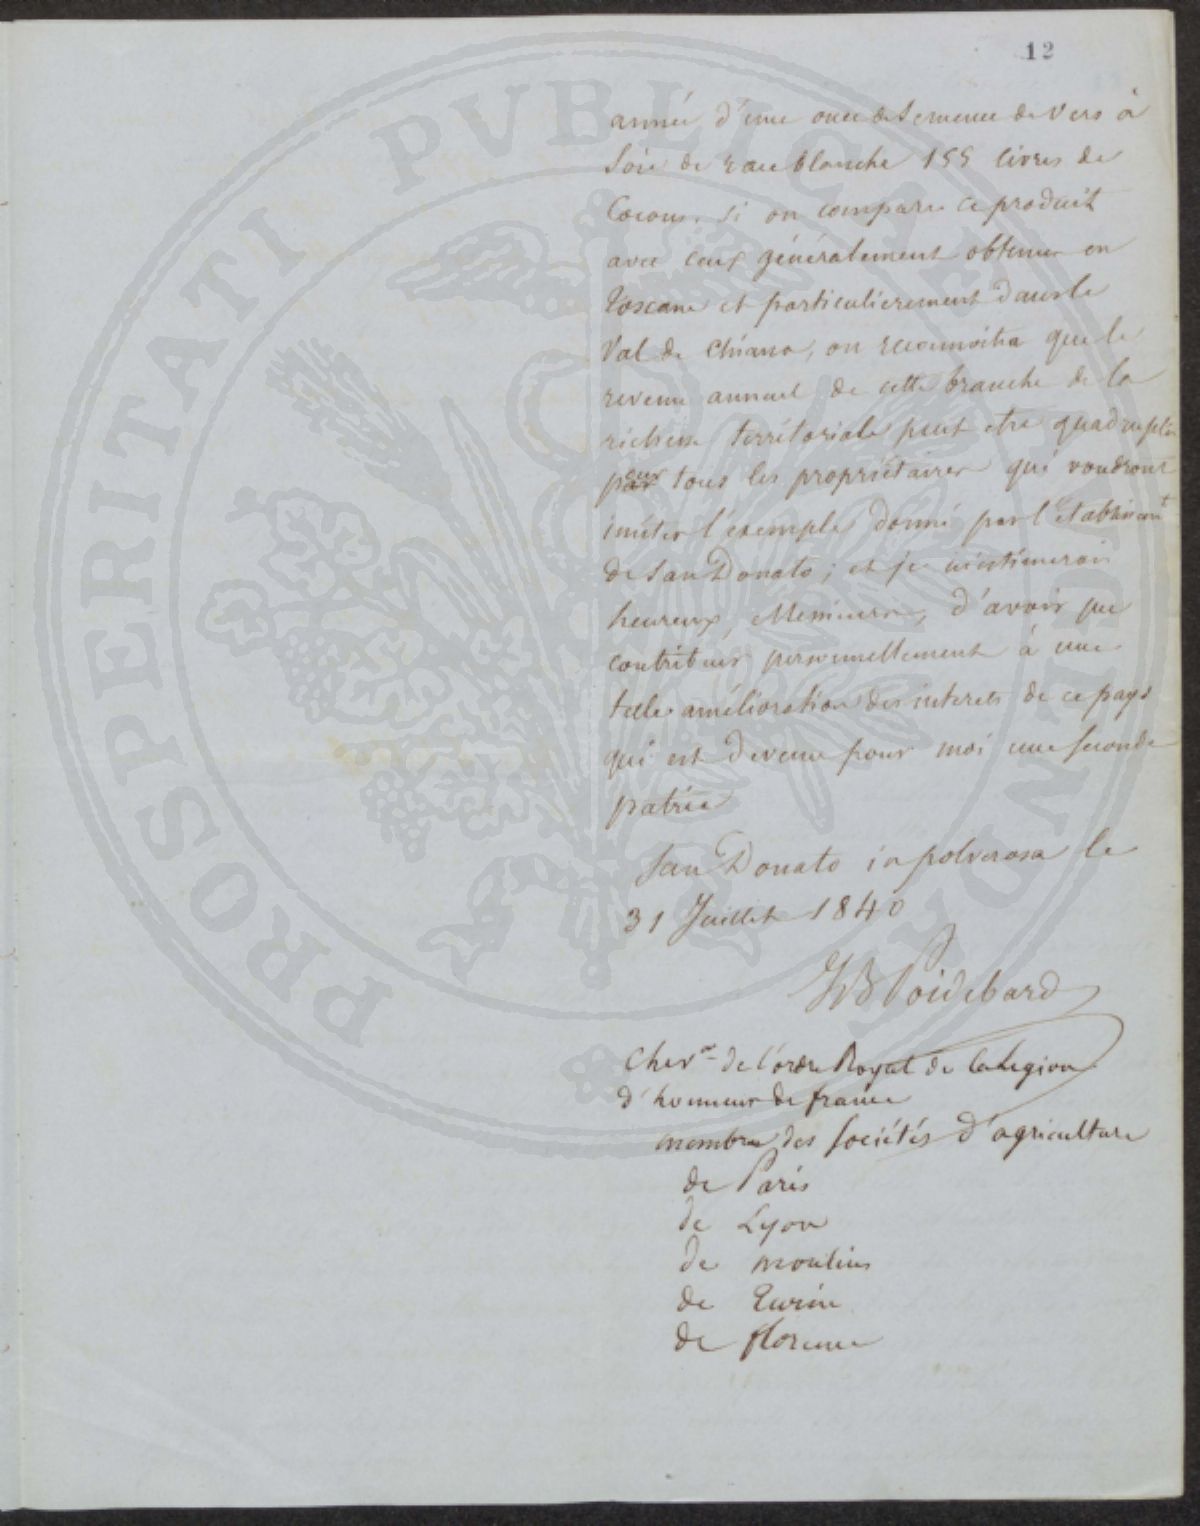 12
année d'une once de Semence de Vers à
Soie de race blanche 155 livres de
Cocons. si on compare ce produit
avec ceux généralement obtenus en
Toscane et particulierement dans le
Val de Chiana, on reconnoitra que le
revenu annuel de cette branche de la
richesse territoriale peut etre quadruplé
par tous les propriétaires qui voudront
imiter l'exemple donné par l'établissemt
de San Donato; et je m'estimerois
heureux, Messieurs, d'avoir pu
contribuer personnellement à une
telle amélioration des interets de ce pays
qui est devenu pour moi une seconde
patrie
San Donato in polverosa le
31 Juillet 1840
JB Poidebard
Chevr de l'ordre Royal de la Legion
d'honneur de france
membre des Sociétés d'agriculture
de Paris
de Lyon
de moulins
de Turin
de florence
PROSPERITATI PVBLICAE AVGENDAE